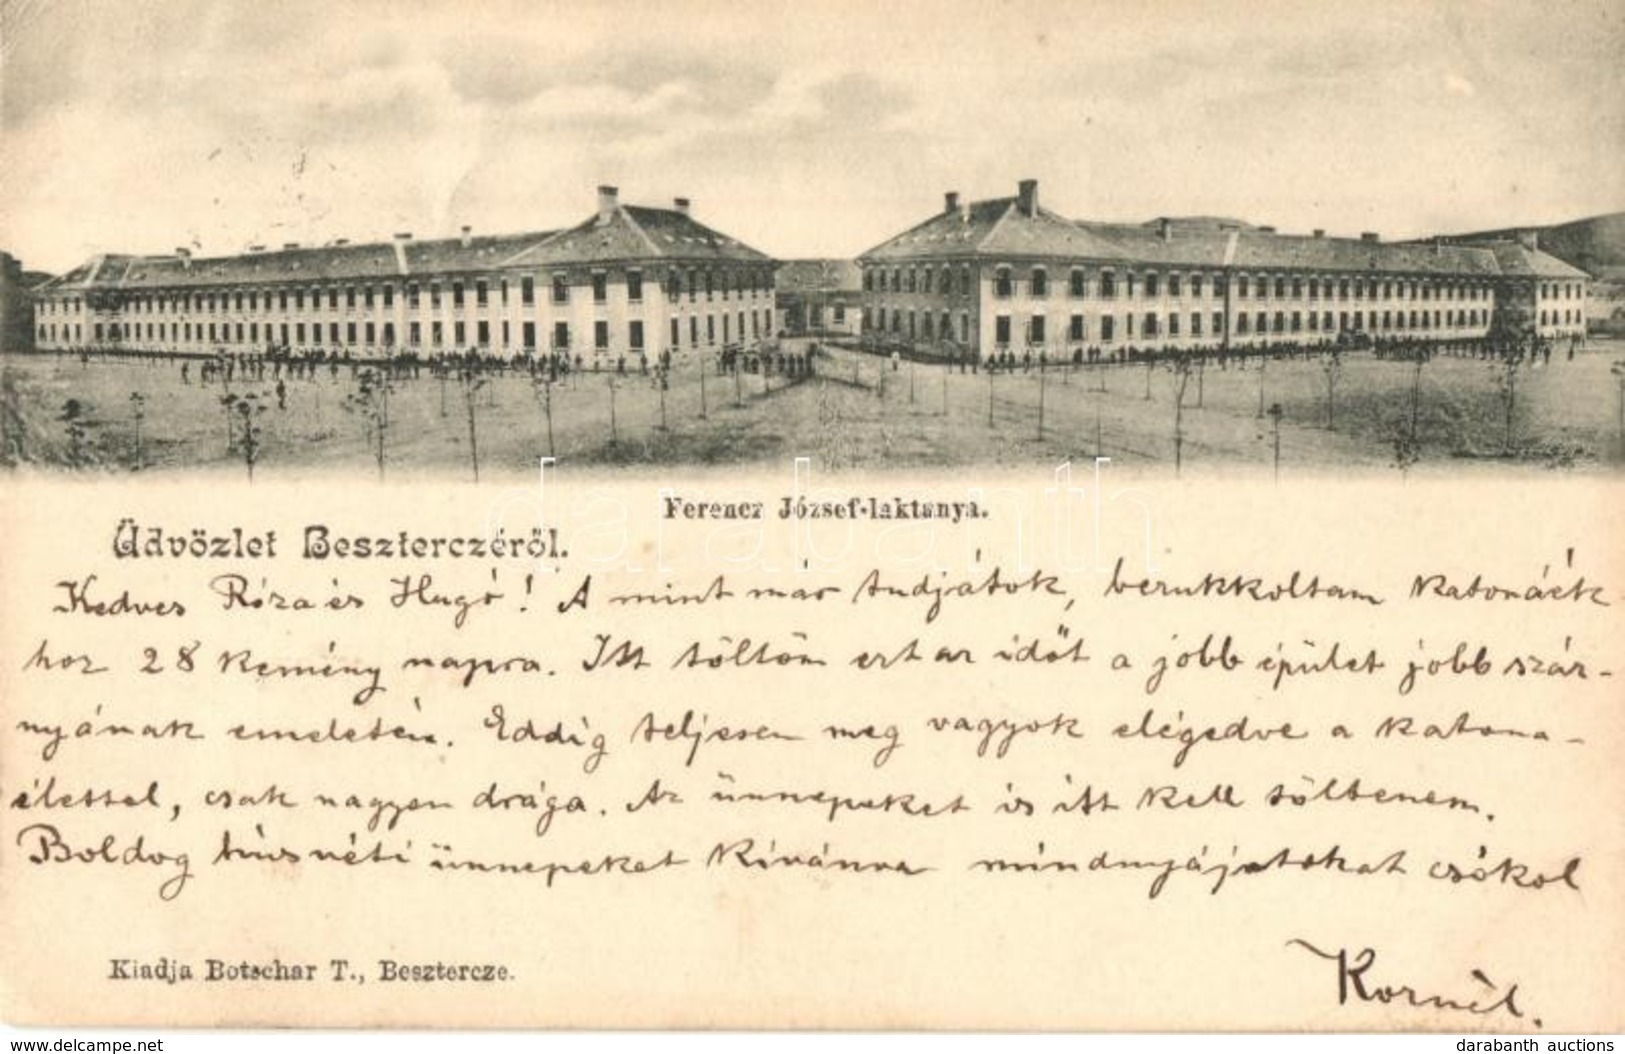 Ferencz József-laktanya.
darabanth
Üdvözlet Beszterczéről.
Kedves Róza és Hugó! A mint már tudjátok, berukkoltam katonáék
hoz 28 kemény napra. Itt töltöm ezt az időt a jobb épület jobb szár-
nyának emeletén. Eddig teljesen meg vagyok elégedve a katona-
élettel, csak nagyon drága. Az ünnepeket is itt kell töltenem.
Boldog húsvéti ünnepeket kívánva mindnyájatokat csókol
Kornél.
Kiadja Botschar T., Besztercze.
delcampe.net
darabanth auctions